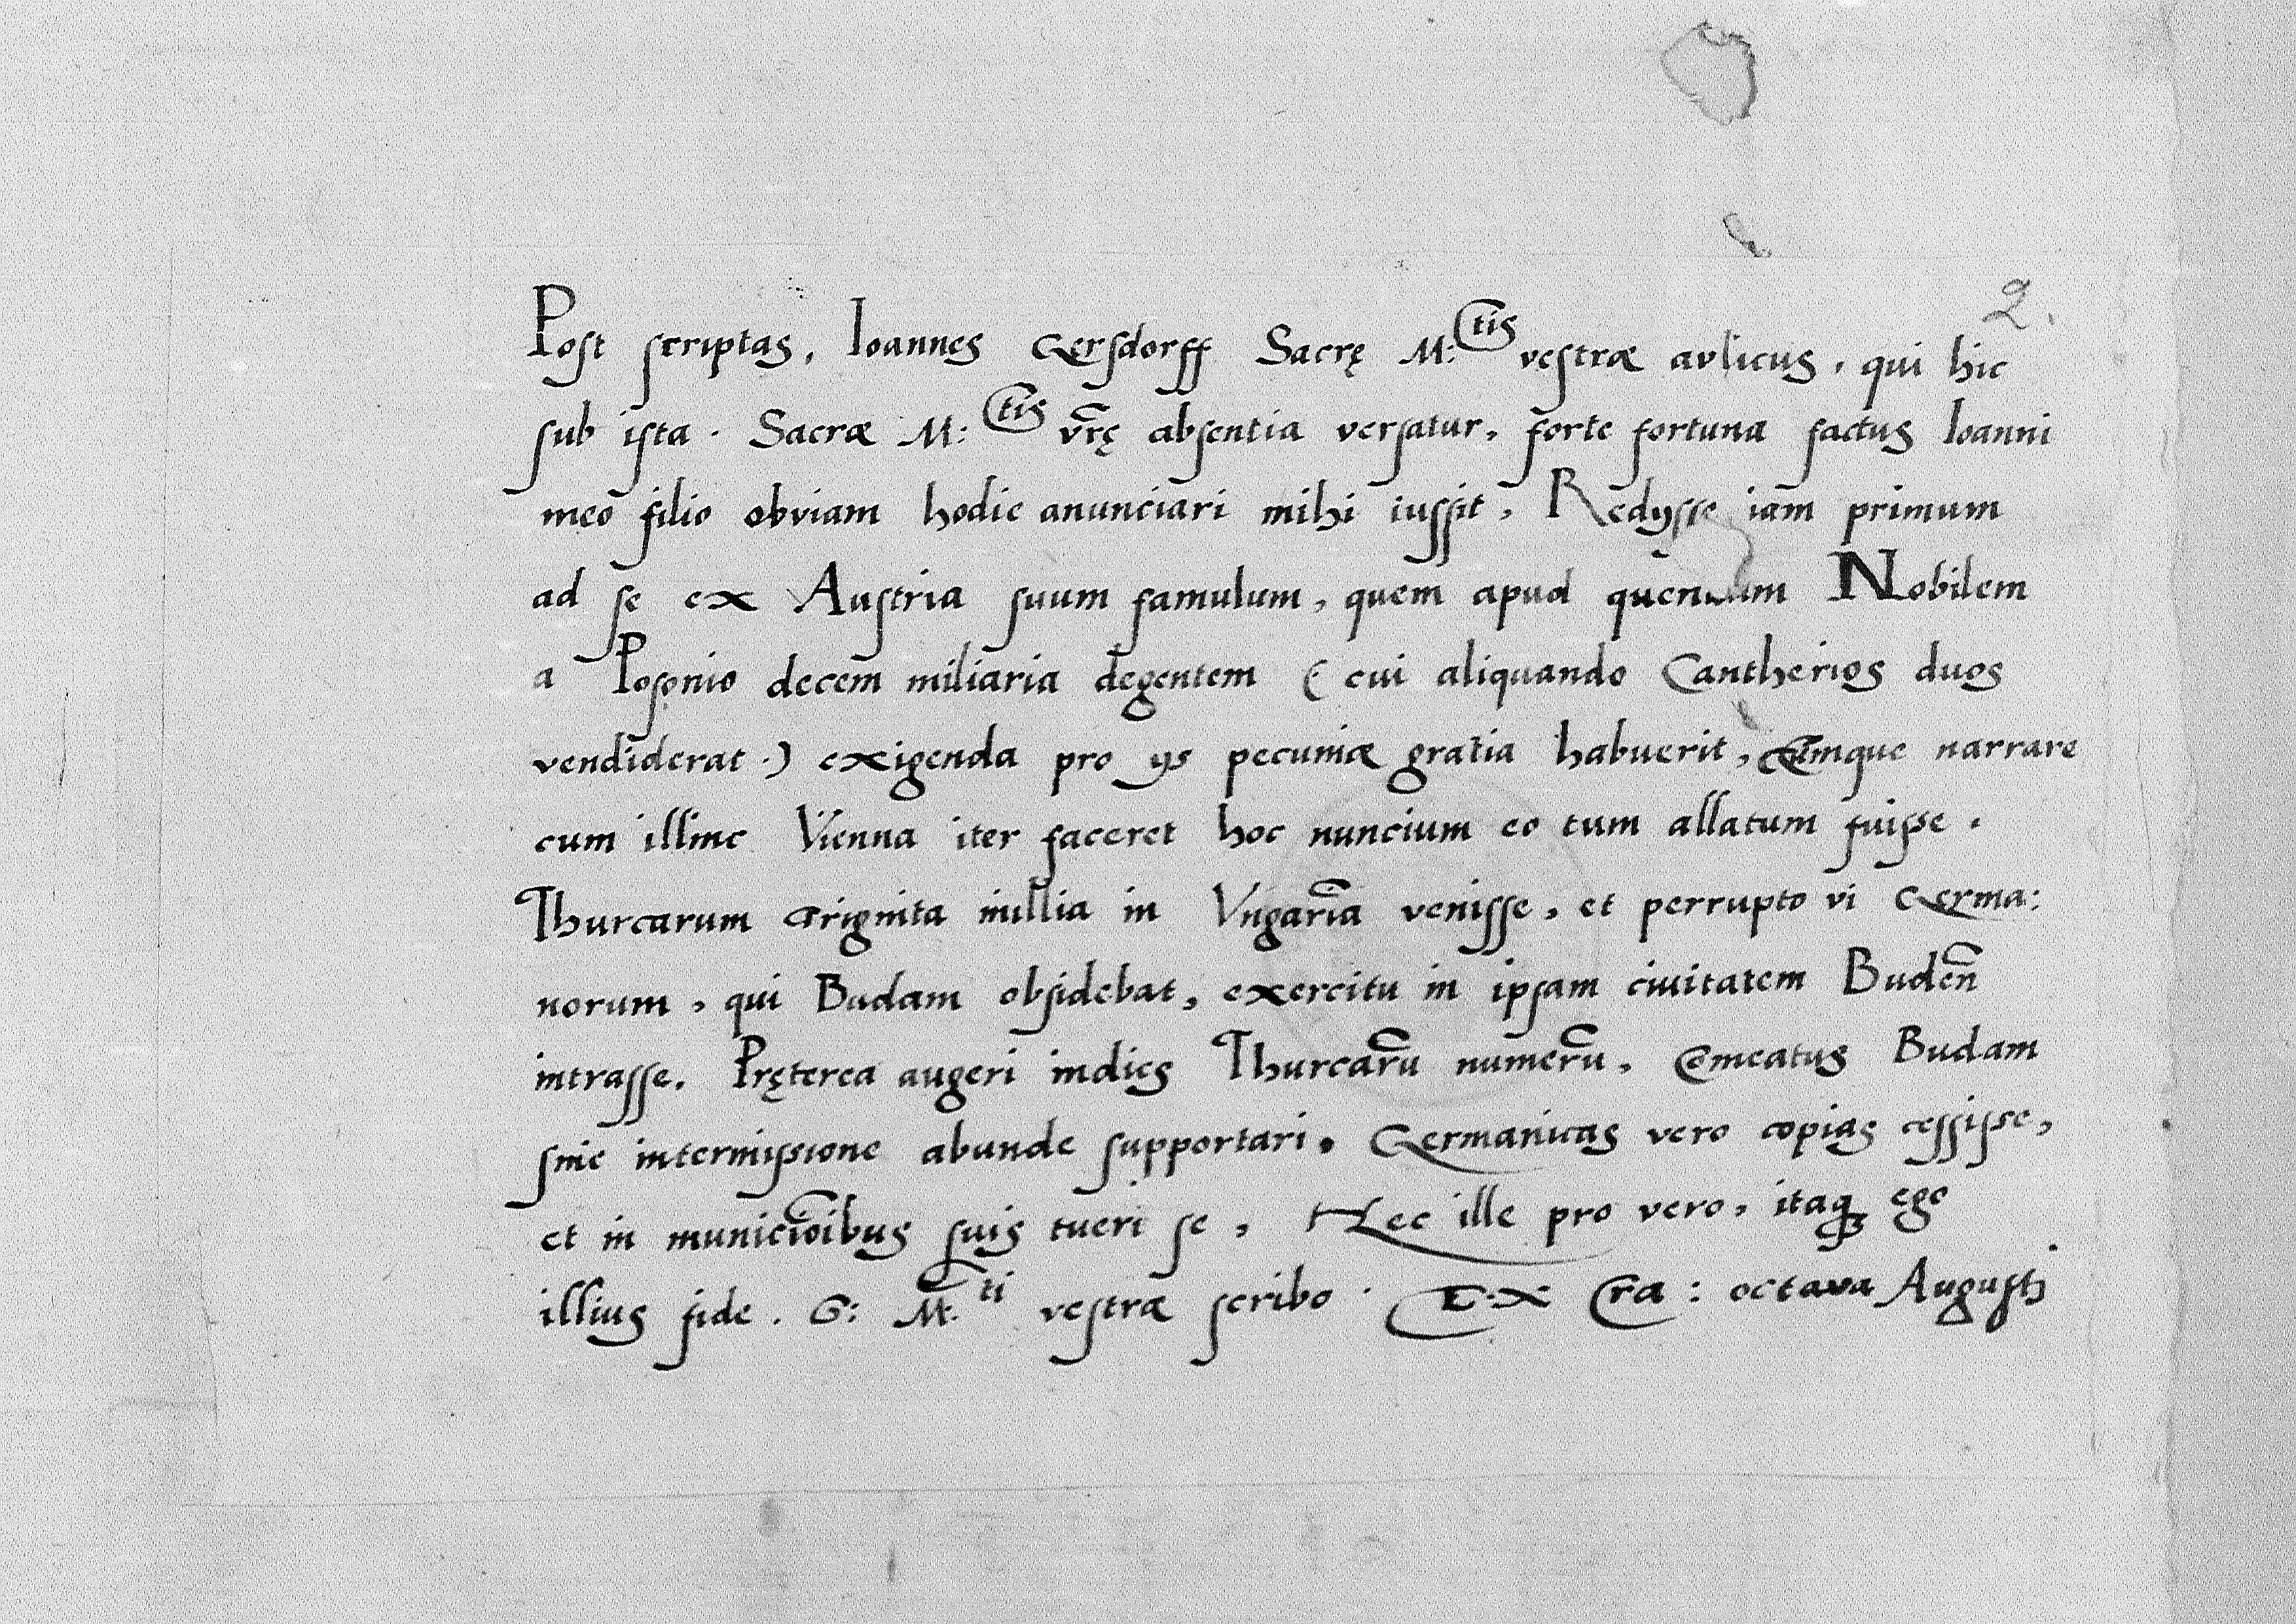 2.
Post scriptas, Ioannes Gersdorff Sacrę M:tis vestræ aulicus, qui hic
sub ista. Sacræ M:tis vr̃ę absentia versatur, forte fortuna factus Ioanni
meo filio obviam hodie anunciari mihi iussit, Redysse iam primum
ad se ex Austria suum famulum, quem apud quendam Nobilem
a Posonio decem miliaria degentem ( cui aliquando Cantherios duos
vendiderat.) exigenda pro ys pecuniæ gratia habuerit, Eumque narrare
cum illinc Vienna iter faceret hoc nuncium eo tum allatum fuisse.
Thurcarum triginta millia in Vngariã venisse, et perrupto vi Germa:
norum, qui Budam obsidebat, exercitu in ipsam ciuitatem Budeñ
intrasse. Pręterea augeri indies Thurcarũ numerũ, Cõmeatus Budam
sine intermissione abunde supportari. Germanicas vero copias cessisse,
et in municiõibus suis tueri se, Hec ille pro vero, itaqꝫ ego
illius fide. G: M.ti vestræ scribo. Ex Cra: octava Augusti